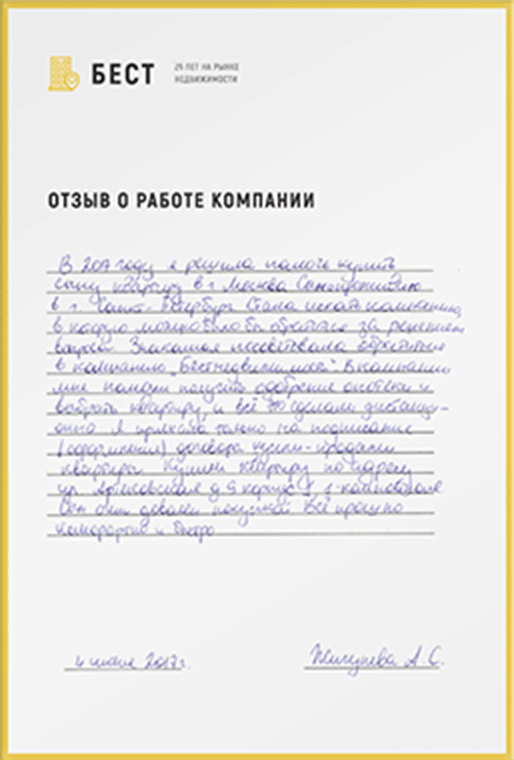 БЕСТ
25 ЛЕТ НА РЫНКЕ
НЕДВИЖИМОСТИ
ОТЗЫВ О РАБОТЕ КОМПАНИИ
В 2017 году я решила помочь купить
сыну квартиру в г. Москва
в г. Санкт-Петербург Стала искать компанию,
в какую можно было бы обратиться за решением
вопроса. Знакомая посоветовала обратиться
в компанию „Бест-недвижимость". В компании
мне помогли получить одобрение ипотеки и
выбрать квартиру, и всё это сделали дистанци-
онно. Я приехала только на подписание
(оформления) договора купли-продажи
квартиры. Купили квартиру по адресу
ул. д 9 корпус 1-комнатная
Все были довольны покупкой. Всё прошло
комфортно и быстро
4 июля 2017г.
А. С.